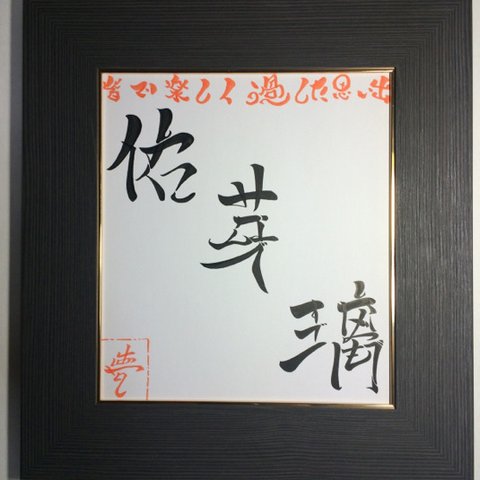 皆で楽しく過した思い出
佑
芽
璃
夢